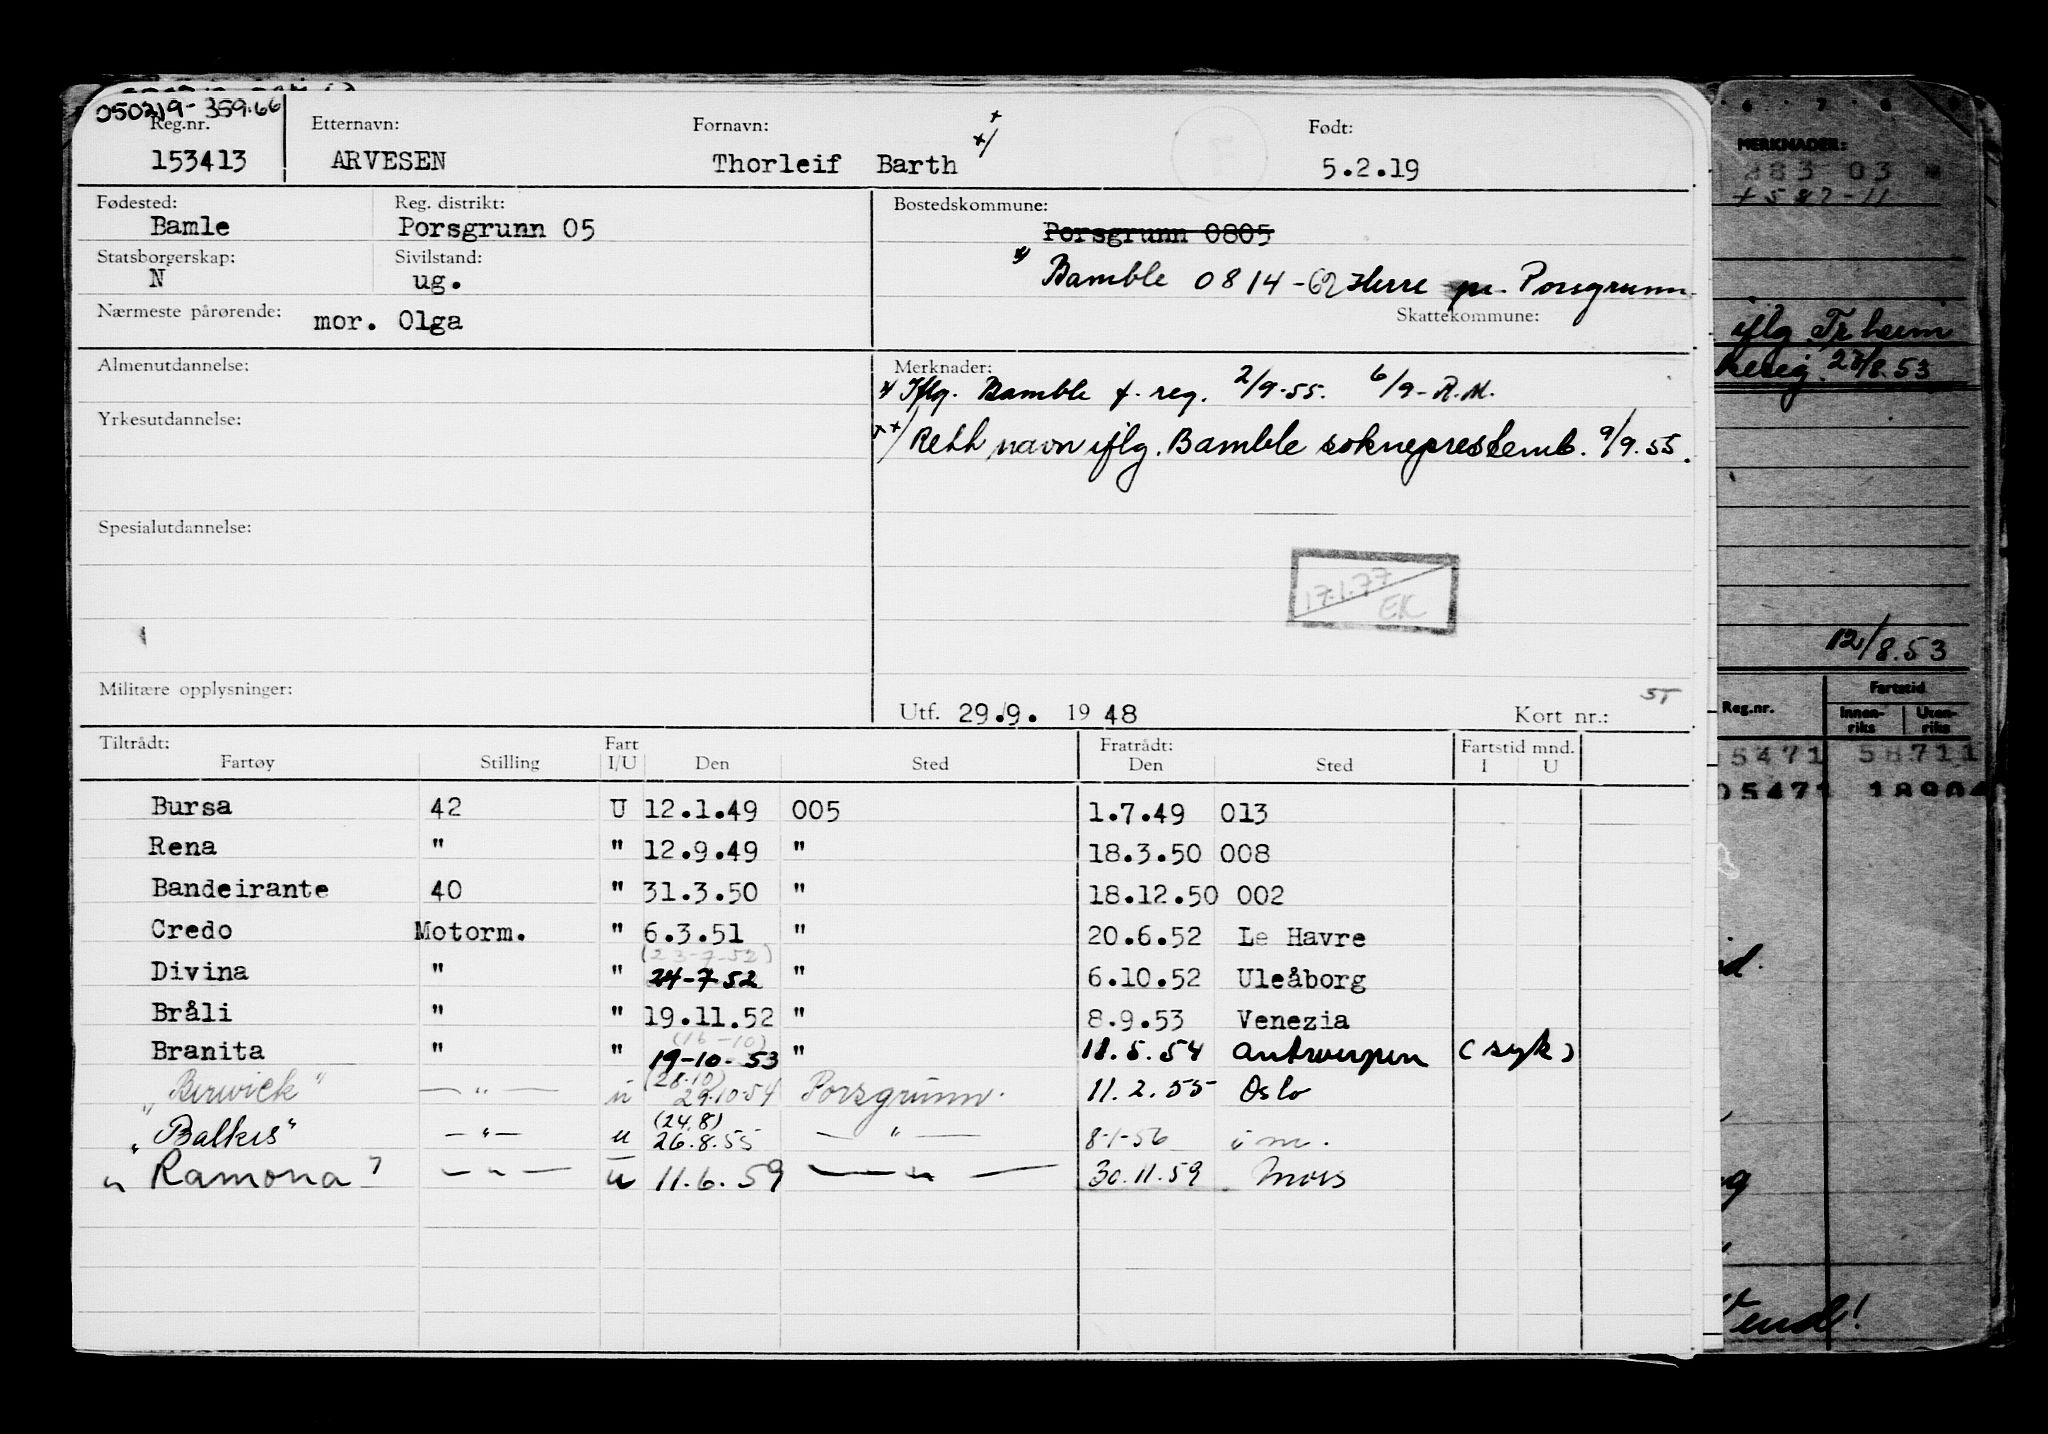 050219-359.66
Reg.nr. Etternavn: Fornavn: Født:
153413 ARVESEN Thorleif Barth +/ + 5.2.19
Fødested: Reg. distrikt: Bostedskommune:
Bamle Porsgrunn 05 Porsgrunn 0805
Statsborgerskap: Sivilstand:
N ug. Bamble 0814-62 Herre pr. Porsgrunn.
Nærmeste pårørende: mor. Olga Skattekommune:
Almenutdannelse: Merknader:
Iflg. Bamble f. reg. 2/9-55. 6/9-R.M.
Yrkesutdannelse:
++/ Rett navn iflg. Bamble sokneprestemb. 9/9.55.
Spesialutdannelse:
17.1.77
EK
Militære opplysninger:
Utf. 29.9. 1948 Kort nr.: ST
Tiltrådt: Fart Fratrådt: Fartstid mnd.
Fartøy Stilling I/U Den Sted Den Sted I U
Bursa 42 U 12.1.49 005 1.7.49 013
Rena " " 12.9.49 " 18.3.50 008
Bandeirante 40 " 31.3.50 " 18.12.50 002
Credo Motorm. " 6.3.51 " 20.6.52 Le Havre
(23-7-52)
Divina " " 24-7-52 " 6.10.52 Uleåborg
Bråli " " 19.11.52 " 8.9.53 Venezia
(16-10)
Branita " " 19-10-53 " 11.5.54 Antwerpen (syk)
(28.10)
"Berwick" — " — u 29.10.54 Porsgrunn. 11.2.55 Oslo
(24.8)
"Balkis" — " — u 26.8.55 — " — 8-1-56 i m.
"Ramona" — " — u 11.6.59 — " — 30.11.59 Mois
6 7 8
MERKNADER:
883 03
+587-11
iflg. Tr.heim
23/8.53
12/8.53
Reg.nr. Fartstid
Innen-riks Uten-riks
5471 58711
05471 18904
Vend!